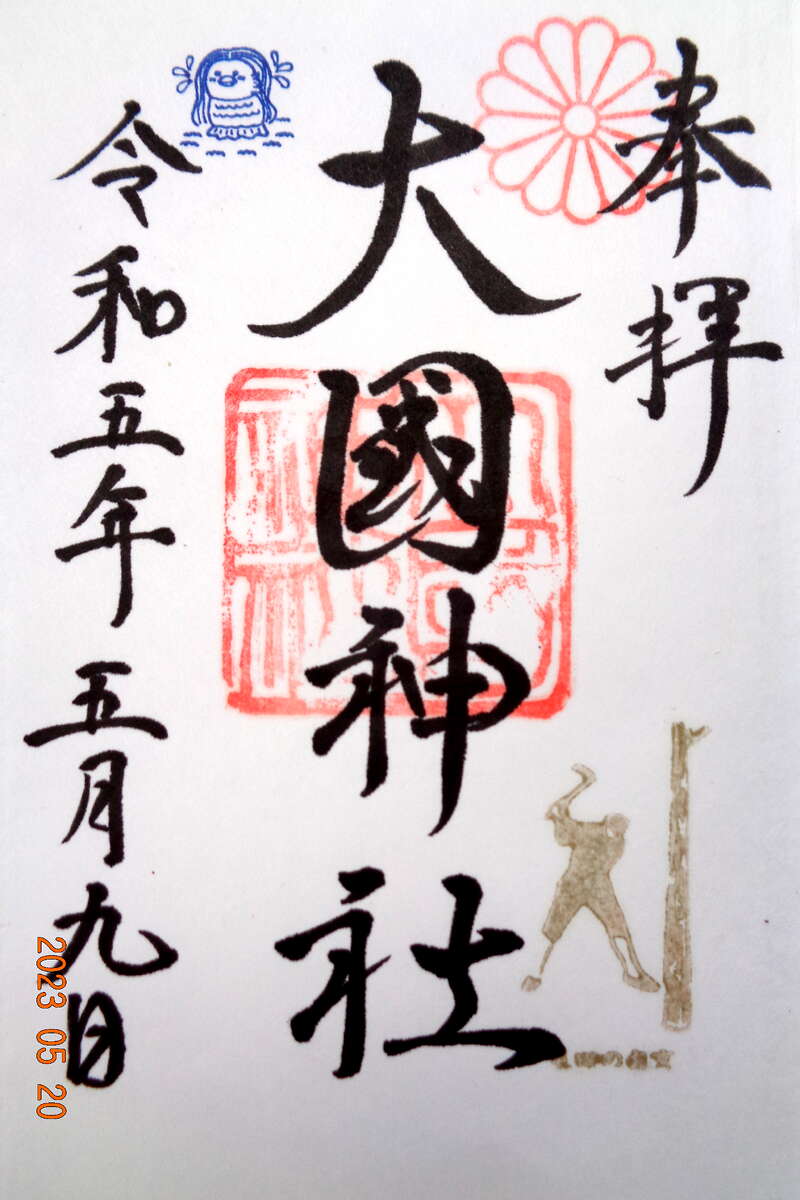 奉拝
大國神社
令和五年五月九日
2023 05 20